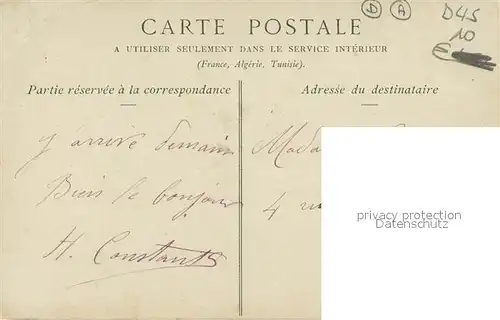 CARTE POSTALE
A UTILISER SEULEMENT DANS LE SERVICE INTÉRIEUR
(France, Algérie, Tunisie).
D A
D45
10
Partie réservée à la correspondance
Adresse du destinataire
J'arrive demain
Bien le bonjour
H. Constant
4
privacy protection
Datenschutz